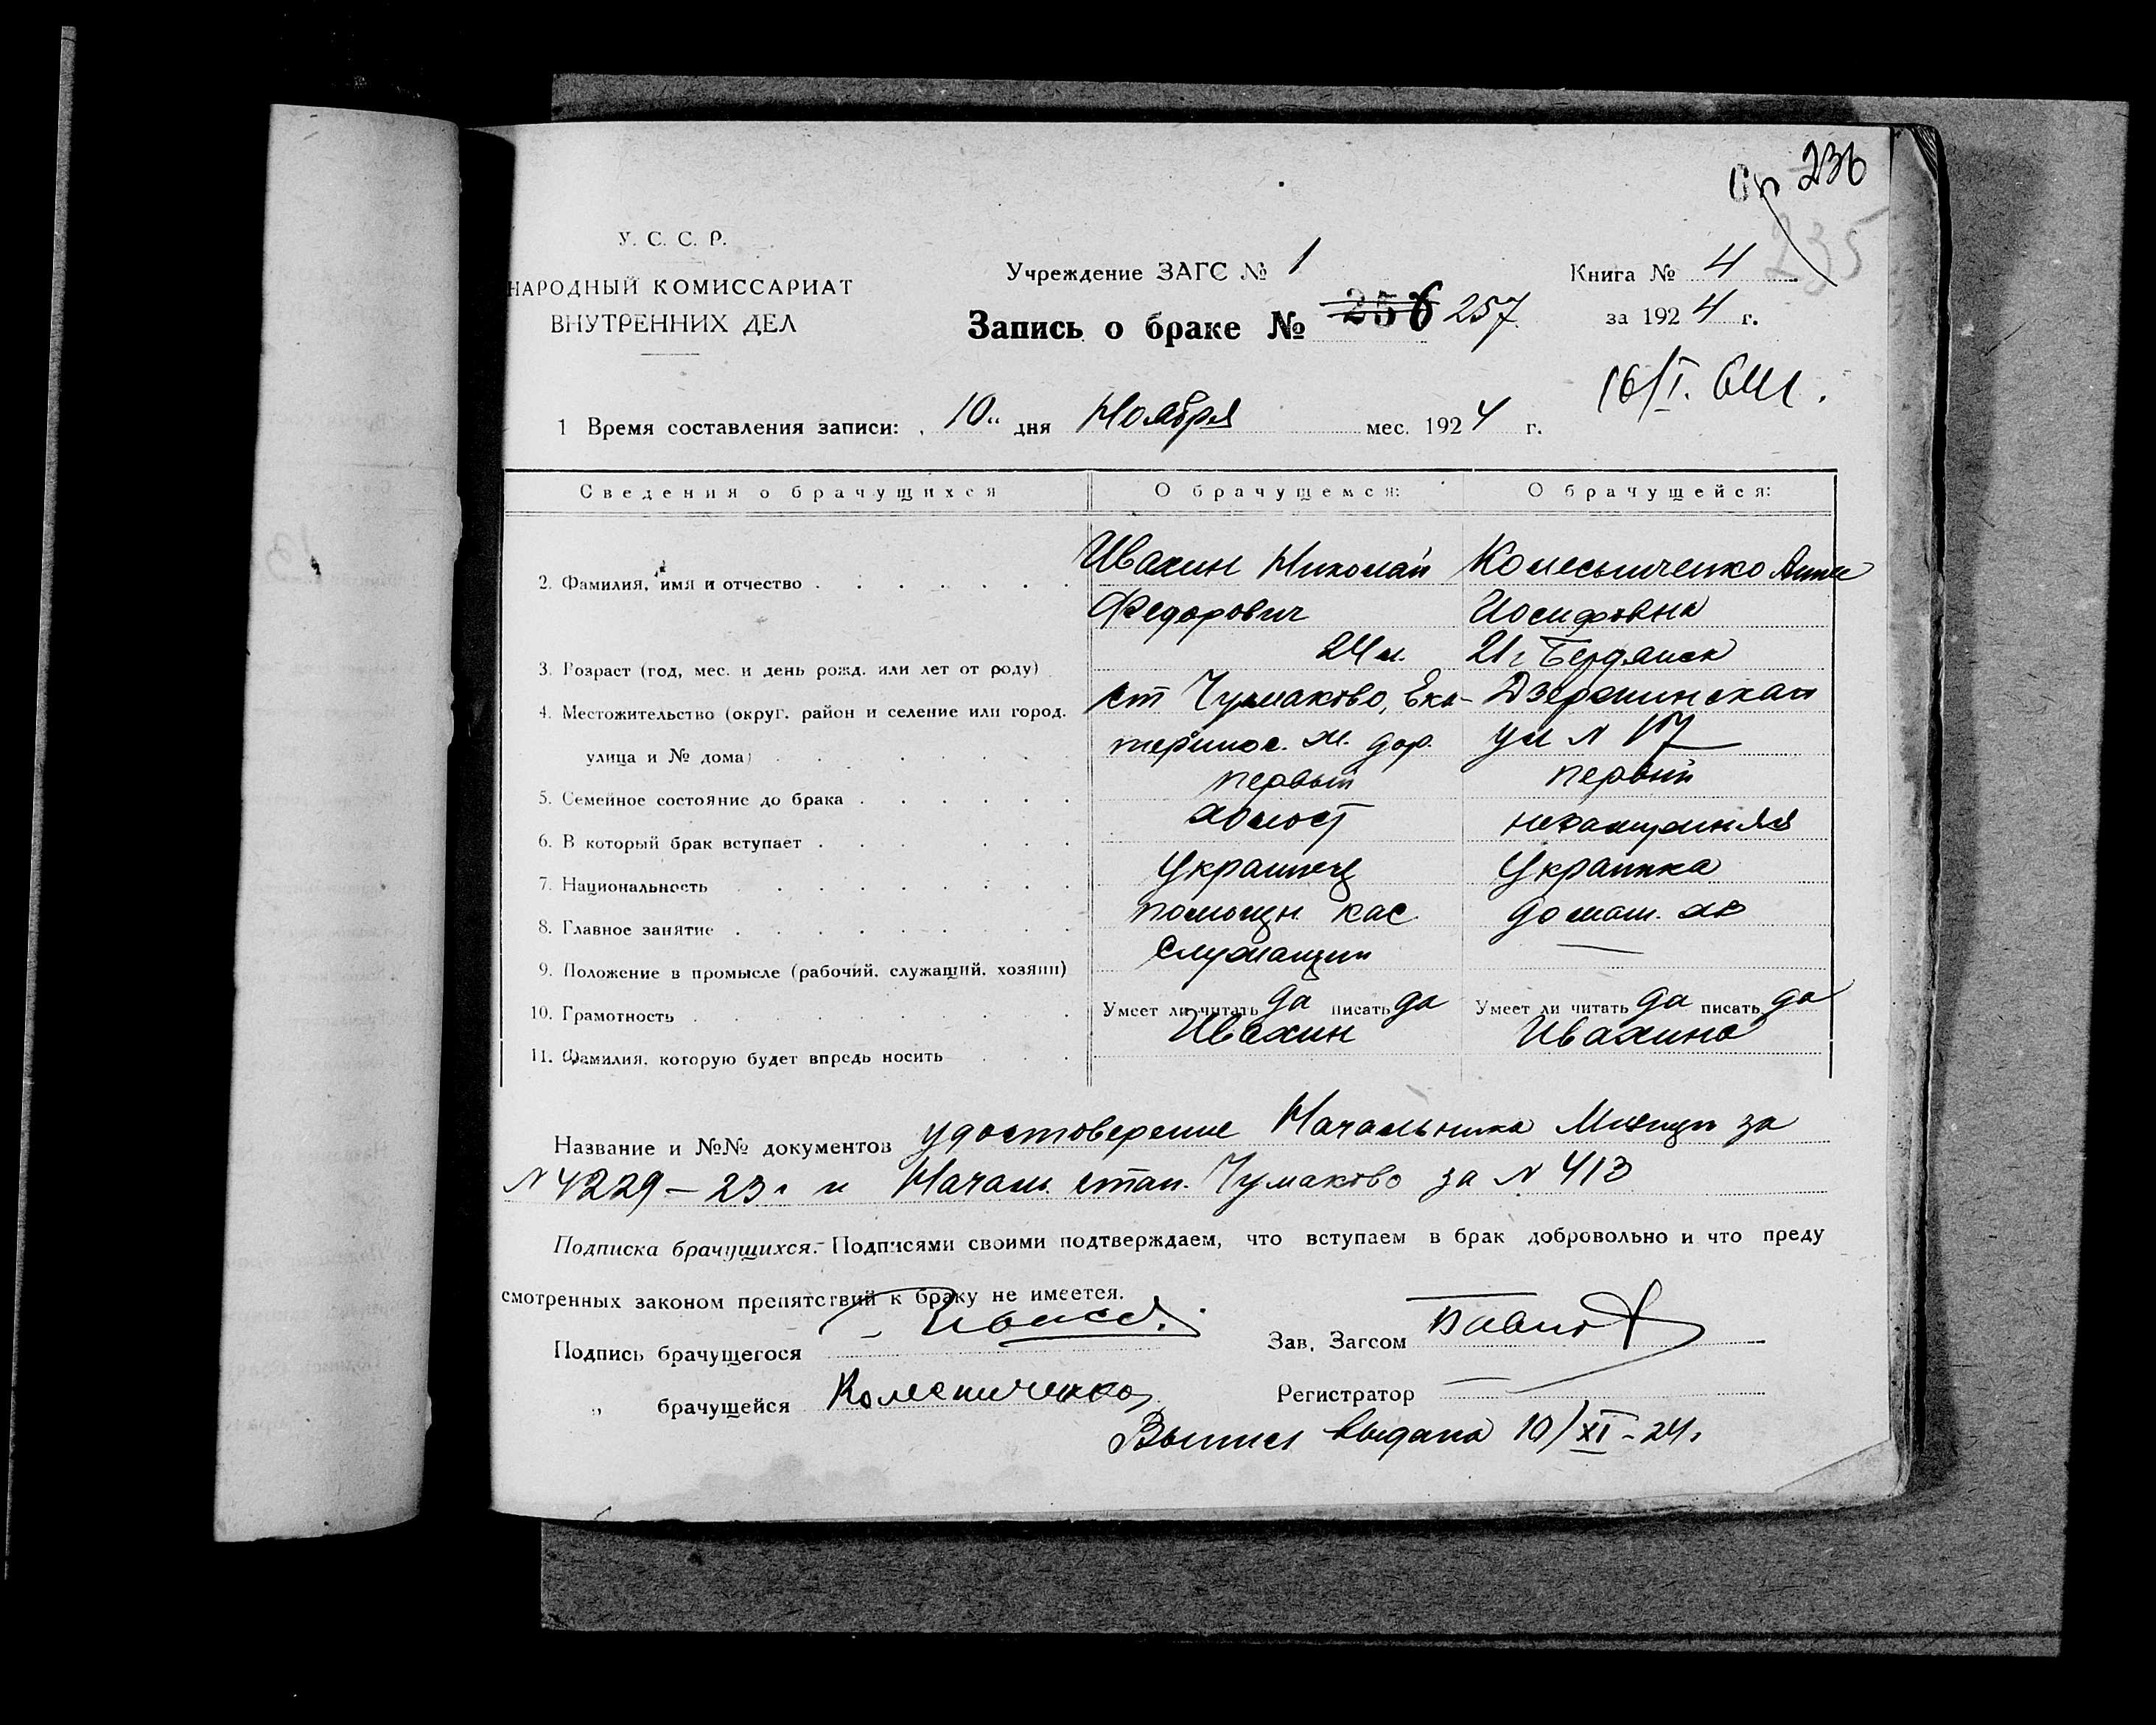 Сп 236
235
У. С. С. Р.
НАРОДНЫЙ КОМИССАРИАТ
ВНУТРЕННИХ ДЕЛ
Учреждение ЗАГС № 1
Запись о браке № 256 257
Книга № 4
за 1924 г.
16/I.
1 Время составления записи: 10" дня Ноября мес. 1924 г.
Сведения о брачущихся О брачущемся: О брачущейся:
2. Фамилия, имя и отчество Ивахин Николай Колесниченко Анна
Федорович Иосифовна
3. Возраст (год, мес. и день рожд. или лет от роду) 24 л. 21 г Бердянск
4. Местожительство (округ, район и селение или город, ст Чумаково, Ека- Дзержинская
улица и № дома) теринос. ж. дор. ул N
5. Семейное состояние до брака первый первый
6. В который брак вступает холост незамужняя
7. Национальность Украинец Украинка
8. Главное занятие помощн. кас домаш. хоз
9. Положение в промысле (рабочий, служащий, хозяин) Служащий —
10. Грамотность Умеет ли читать да писать да Умеет ли читать да писать да
11. Фамилия, которую будет впредь носить Ивахин Ивахина
Название и №№ документов удостоверение Начальника Милиции за
N 4229 – 23 г и Начал. стан. Чумаково за N 413
Подписка брачущихся.- Подписями своими подтверждаем, что вступаем в брак добровольно и что преду
смотренных законом препятствий к браку не имеется.
Подпись брачущегося Зав. Загсом
" брачущейся Колесниченко Регистратор —
Выпись выдана 10/XI-24г.